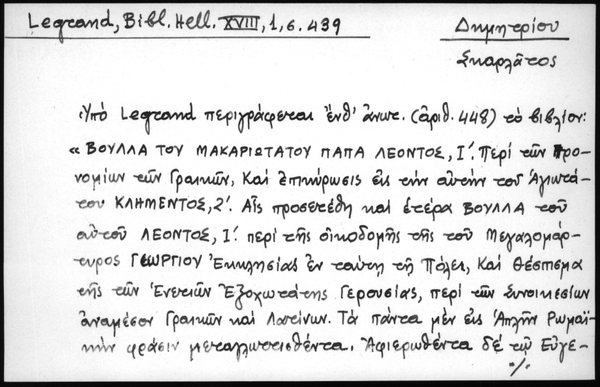 Legrand, Bibl. Hell. XVIII, 1, σ. 439
Δημητρίου
Σκαρλᾶτος
Ὑπὸ Legrand περιγράφεται ἔνθ' ἀνωτ. (ἀριθ. 448) τὸ βιβλίον:
« ΒΟΥΛΛΑ ΤΟΥ ΜΑΚΑΡΙΩΤΑΤΟΥ ΠΑΠΑ ΛΕΟΝΤΟΣ, Ι΄. Περὶ τῶν Προ-
νομίων τῶν Γραικῶν, Καὶ ἐπικύρωσις εἰς τὴν αὐτὴν τοῦ Ἁγιωτά-
του ΚΛΗΜΕΝΤΟΣ, Ζ΄. Αἷς προσετέθη καὶ ἑτέρα ΒΟΥΛΛΑ τοῦ
αὐτοῦ ΛΕΟΝΤΟΣ, Ι΄. περὶ τῆς οἰκοδομῆς τῆς τοῦ Μεγαλομάρ-
τυρος ΓΕΩΡΓΙΟΥ Ἐκκλησίας ἐν ταύτῃ τῇ Πόλει, Καὶ Θέσπισμα
τῆς τῶν Ἑνετιῶν Ἐξοχωτάτης Γερουσίας, περὶ τῶν Συνοικεσίων
ἀναμέσον Γραικῶν καὶ Λατίνων. Τὰ πάντα μὲν εἰς Ἁπλῆν Ρωμαϊ-
κὴν φράσιν μεταγλωττισθέντα. Ἀφιερωθέντα δὲ τῷ Εὐγε-
·/·